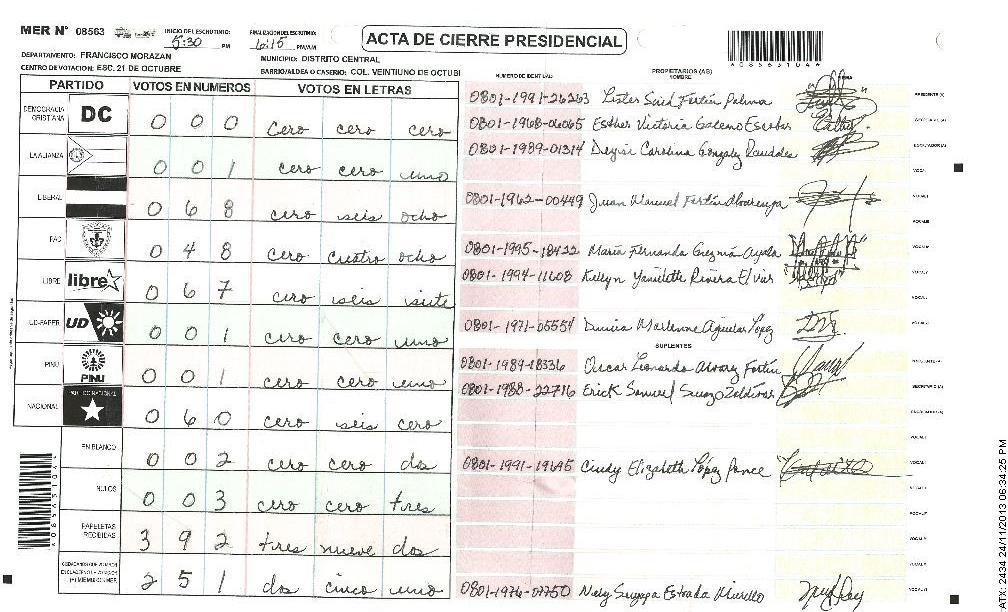 MER N° 08563
INICIO DEL ESCRUTINIO:
5:30 PM
FINALIZACION DEL ESCRUTINIO:
6:15 PM/AM
ACTA DE CIERRE PRESIDENCIAL
DEPARTAMENTO: FRANCISCO MORAZAN
MUNICIPIO: DISTRITO CENTRAL
CENTRO DE VOTACION: ESC. 21 DE OCTUBRE
BARRIO/ALDEA O CASERIO: COL. VEINTIUNO DE OCTUBI
PARTIDO VOTOS EN NUMEROS VOTOS EN LETRAS
DEMOCRACIA CRISTIANA DC 0 0 0 cero cero cero
LA ALIANZA 0 0 1 cero cero uno
LIBERAL 0 6 8 cero seis ocho
PAC 0 4 8 cero cuatro ocho
LIBRE libre 0 6 7 cero seis siete
UD-FAPER UD 0 0 1 cero cero uno
PINU PINU 0 0 1 cero cero uno
NACIONAL PARTIDO NACIONAL 0 6 0 cero seis cero
EN BLANCO 0 0 2 cero cero dos
NULOS 0 0 3 cero cero tres
PAPELETAS RECIBIDAS 3 9 2 tres nueve dos
2 5 1 dos cinco uno
NUMERO DE IDENTIDAD
PROPIETARIOS (AS)
NOMBRE
0801-1991-26263 Lister Said Fortín Palma PRESIDENTE (A)
0801-1968-06065 Esther Victoria Galeno Escobar SECRETARIO (A)
0801-1989-01314 Deysi Carolina Gonzalez ESCRUTADOR (A)
VOCAL I
0801-1962-00449 Juan Manuel Fortín Alvarenga
0801-1995-18422 María Fernanda Guzmán Ayala
0801-1994-11608 Kelyn Yanideth Rivera
0801-1971-05554 Marlenne Aguilar López
SUPLENTES
0801-1989-18336 Oscar Leonardo Fortín PRESIDENTE (A)
0801-1988-22716 Erick Samuel Suazo SECRETARIO (A)
ESCRUTADOR (A)
VOCAL I
0801-1991-19695 Cindy Elizabeth López Ponce
0801-1976-07750 Nely Suyapa Estrada Murillo
A08563104
A08563104
24/11/2013 06:34:25 PM